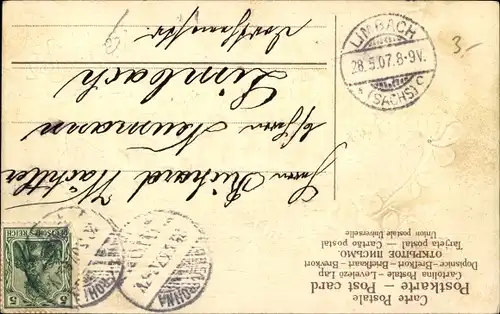 Carte Postale
Postkarte — Post card
Cartolina Postale — Levelező Lap
Dopisnice — Brefkaart — Briefkaart — Brevkort
ОТКРЫТОЕ ПИСЬМО.
Tarjeta postal — Cartão postal
Union postale Universelle
Herrn Richard Wächtler
b/Herrn Neumann
Limbach
Dorotheenstr.
LIMBACH
28.5.07.8-9V.
* (SACHS) C
5 5
3.-